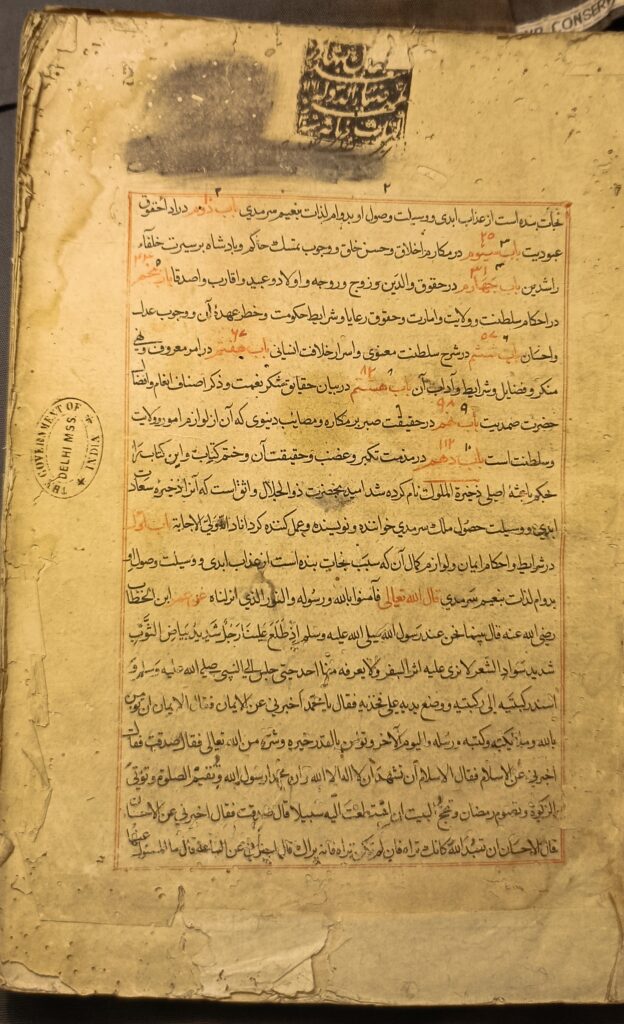 نجات بنده است از عذاب ابدی و وسیلت وصول او بدوام لذات بنعیم سرمدی باب دوم در ادا حقوق
عبودیت باب سیوم در مکارم اخلاق و حسن خلق و وجوب تمسک حاکم و پادشاه بر سیرت خلفاء
راشدین باب چهارم در حقوق والدین و زوج و زوجه و اولاد و عبید و اقارب و اصدقا باب پنجم
در احکام سلطنت و ولایت و امارت و حقوق رعایا و شرایط حکومت و خطر عهدهٔ آن و وجوب عدل
و احسان باب ششم در شرح سلطنت معنوی و اسرار خلافت انسانی باب هفتم در امر معروف و نهی
منکر و فضایل و شرایط و آداب آن باب هشتم در بیان حقایق شکر نعمت و ذکر اصناف انعام و افضال
حضرت صمدیت باب نهم در حقیقت صبر بر مکاره و مصایب دنیوی که آن از لوازم امور ولایت
و سلطنت است باب دهم در مذمت تکبر و غضب و حقیقت آن و ختم کتاب و این کتاب را
بحکم اصلی ذخیرة الملوک نام کرده شد امید بحضرت ذو الجلال واثق است که از این ذخیره سعادت
ابدی و وسیلت حصول ملک سرمدی خواننده و نویسنده و عمل کننده کرداناد الاجابة باب اول
در شرایط و احکام ایمان و لوازم کمال آن که سبب نجات بنده است از عذاب ابدی و وسیلت وصول او
بدوام لذات بنعیم سرمدی قال الله تعالی فآمنوا بالله و رسوله و النور الذی انزلناه عن عمر ابن الخطاب
رضی الله عنه قال بینما نحن عند رسول الله صلی الله علیه وسلم اذ طلع علینا رجل شدید بیاض الثوب
شدید سواد الشعر لا نری علیه اثر السفر و لا یعرفه منا احد حتی جلس الی النبی صلی الله علیه وسلم و
اسند رکبتیه الی رکبتیه و وضع یدیه علی فخذیه فقال یا محمد اخبرنی عن الایمان فقال الایمان ان تومن
بالله و ملائکته و کتبه و رسله و الیوم الاخر و تؤمن بالقدر خیره و شره من الله تعالی فقال صدقت فقال
اخبرنی عن الاسلام فقال الاسلام ان تشهد ان لا اله الا الله و ان محمدا رسول الله و تقیم الصلوة و تؤتی
الزکوة و تصوم رمضان و تحج البیت ان استطعت الیه سبیلا قال صدقت فقال اخبرنی عن الاحسان
قال الاحسان ان تعبد الله کانک تراه فان لم تکن تراه فانه یراک قال اخبرنی عن الساعة قال ما المسئول عنها
GOVERNMENT OF INDIA
DELHI MSS.